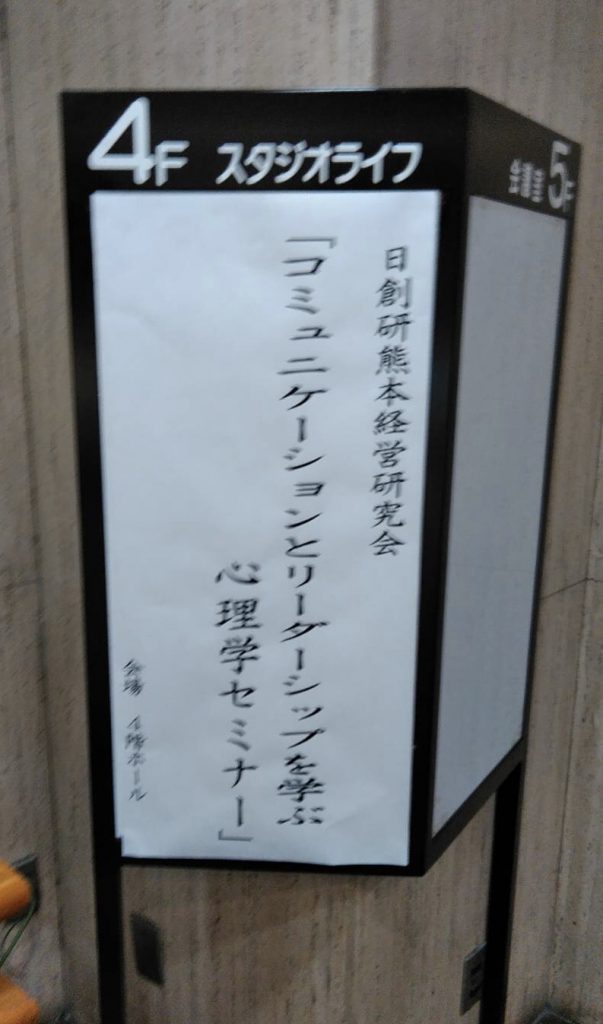 4F スタジオライフ
日創研熊本経営研究会
「コミュニケーションとリーダーシップを学ぶ
心理学セミナー」
会場 4階ホール
会議室 5F